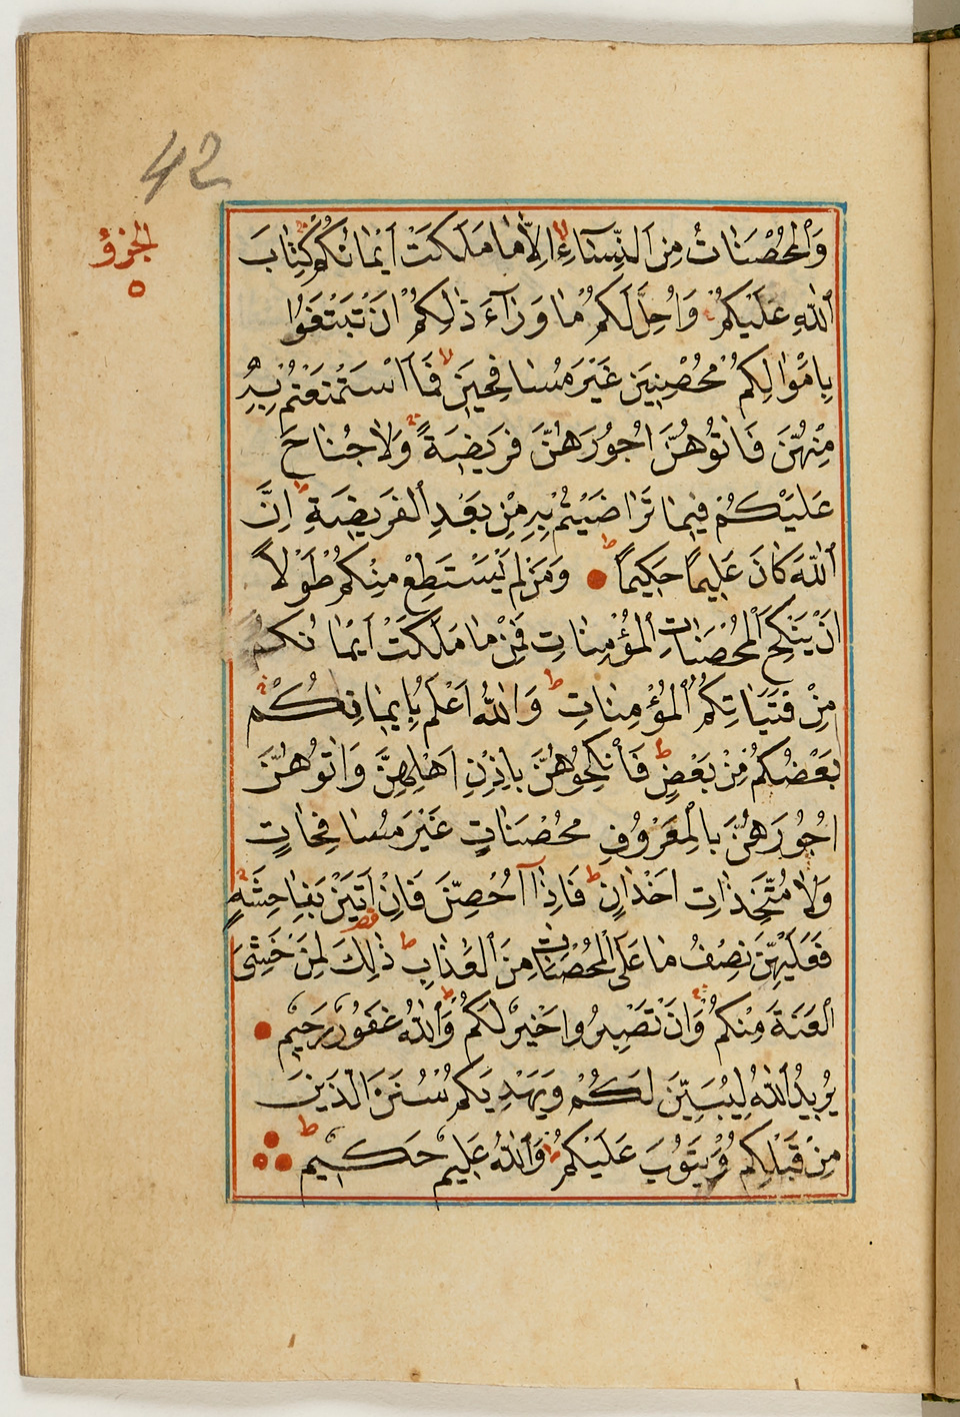 42
الجزؤ
٥
وَالْمُحْصَنَاتُ مِنَ النِّسَآءِ اِلَّا مَا مَلَكَتْ اَيْمَانُكُمْ كِتَابَ
اللّٰهِ عَلَيْكُمْ وَاُحِلَّ لَكُمْ مَا وَرَآءَ ذٰلِكُمْ اَنْ تَبْتَغُوا
بِاَمْوَالِكُمْ مُحْصِنِينَ غَيْرَ مُسَافِحِينَ فَمَا اسْتَمْتَعْتُمْ بِهِ
مِنْهُنَّ فَاٰتُوهُنَّ اُجُورَهُنَّ فَرِيضَةً وَلَا جُنَاحَ
عَلَيْكُمْ فِيمَا تَرَاضَيْتُمْ بِهِ مِنْ بَعْدِ الْفَرِيضَةِ اِنَّ
اللّٰهَ كَانَ عَلِيمًا حَكِيمًا وَمَنْ لَمْ يَسْتَطِعْ مِنْكُمْ طَوْلًا
اَنْ يَنْكِحَ الْمُحْصَنَاتِ الْمُؤْمِنَاتِ فَمِنْ مَا مَلَكَتْ اَيْمَانُكُمْ
مِنْ فَتَيَاتِكُمُ الْمُؤْمِنَاتِ وَاللّٰهُ اَعْلَمُ بِاِيمَانِكُمْ
بَعْضُكُمْ مِنْ بَعْضٍ فَانْكِحُوهُنَّ بِاِذْنِ اَهْلِهِنَّ وَاٰتُوهُنَّ
اُجُورَهُنَّ بِالْمَعْرُوفِ مُحْصَنَاتٍ غَيْرَ مُسَافِحَاتٍ
وَلَا مُتَّخِذَاتِ اَخْدَانٍ فَاِذَا اُحْصِنَّ فَاِنْ اَتَيْنَ بِفَاحِشَةٍ
فَعَلَيْهِنَّ نِصْفُ مَا عَلَى الْمُحْصَنَاتِ مِنَ الْعَذَابِ ذٰلِكَ لِمَنْ خَشِىَ
الْعَنَتَ مِنْكُمْ وَاَنْ تَصْبِرُوا خَيْرٌ لَكُمْ وَاللّٰهُ غَفُورٌ رَحِيمٌ
يُرِيدُ اللّٰهُ لِيُبَيِّنَ لَكُمْ وَيَهْدِيَكُمْ سُنَنَ الَّذِينَ
مِنْ قَبْلِكُمْ وَيَتُوبَ عَلَيْكُمْ وَاللّٰهُ عَلِيمٌ حَكِيمٌ